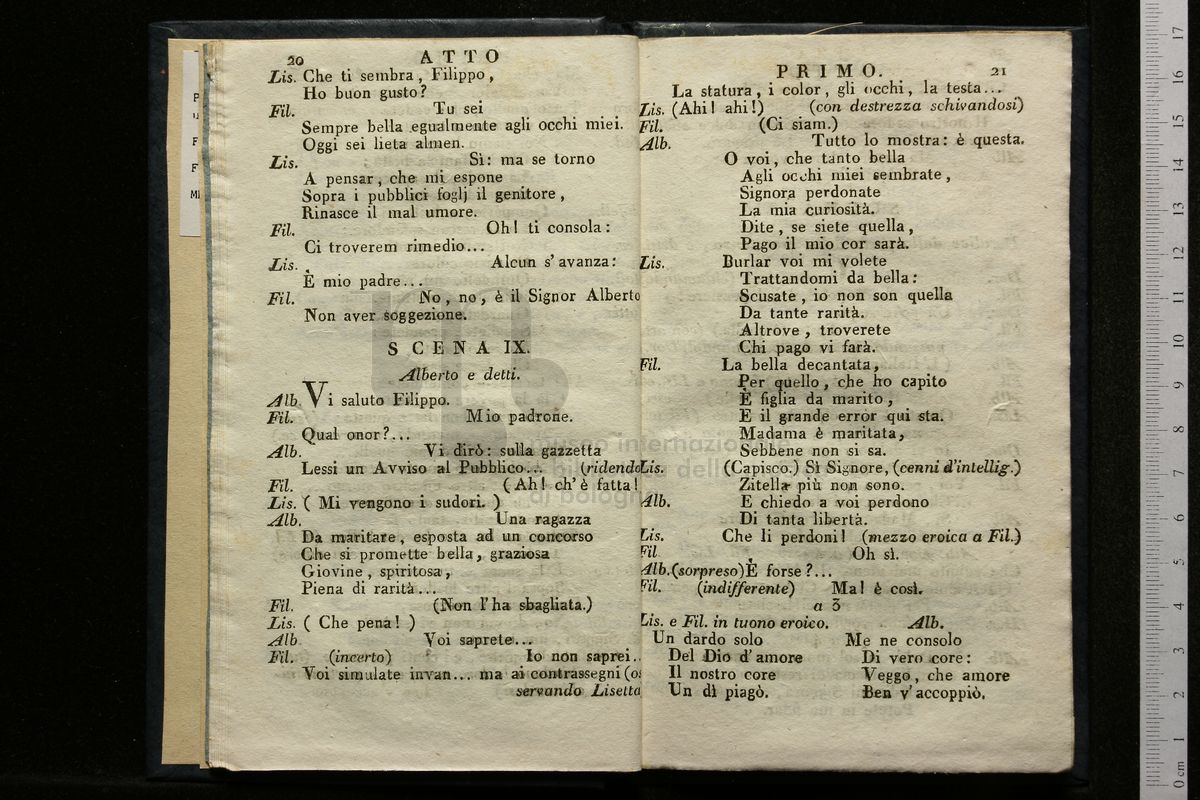 20 ATTO
Lis. Che ti sembra, Filippo,
Ho buon gusto?
Fil. Tu sei
Sempre bella egualmente agli occhi miei.
Oggi sei lieta almen.
Lis. Sì: ma se torno
A pensar, che mi espone
Sopra i pubblici foglj il genitore,
Rinasce il mal umore.
Fil. Oh! ti consola:
Ci troverem rimedio...
Lis. Alcun s'avanza:
È mio padre...
Fil. No, no, è il Signor Alberto
Non aver soggezione.
SCENA IX.
Alberto e detti.
Alb. Vi saluto Filippo.
Fil. Mio padrone.
Qual onor?...
Alb. Vi dirò: sulla gazzetta
Lessi un Avviso al Pubblico... (ridendo
Fil. (Ah! ch'è fatta!
Lis. ( Mi vengono i sudori. )
Alb. Una ragazza
Da maritare, esposta ad un concorso
Che si promette bella, graziosa
Giovine, spiritosa,
Piena di rarità...
Fil. (Non l'ha sbagliata.)
Lis. ( Che pena! )
Alb Voi saprete...
Fil. (incerto) Io non saprei..
Voi simulate invan... ma ai contrassegni (os
servando Lisetta
PRIMO. 21
La statura, i color, gli occhi, la testa...
Lis. (Ahi! ahi!) (con destrezza schivandosi)
Fil. (Ci siam.)
Alb. Tutto lo mostra: è questa.
O voi, che tanto bella
Agli occhi miei sembrate,
Signora perdonate
La mia curiosità.
Dite, se siete quella,
Pago il mio cor sarà.
Lis. Burlar voi mi volete
Trattandomi da bella:
Scusate, io non son quella
Da tante rarità.
Altrove, troverete
Chi pago vi farà.
Fil. La bella decantata,
Per quello, che ho capito
È figlia da marito,
E il grande error qui sta.
Madama è maritata,
Sebbene non si sa.
Lis. (Capisco.) Sì Signore, (cenni d'intellig.)
Zitella più non sono.
Alb. E chiedo a voi perdono
Di tanta libertà.
Lis. Che li perdoni! (mezzo eroica a Fil.)
Fil Oh sì.
Alb. (sorpreso) È forse?...
Fil. (indifferente) Ma! è così.
a 3
Lis. e Fil. in tuono eroico. Alb.
Un dardo solo Me ne consolo
Del Dio d'amore Di vero core:
Il nostro core Veggo, che amore
Un dì piagò. Ben v'accoppiò.